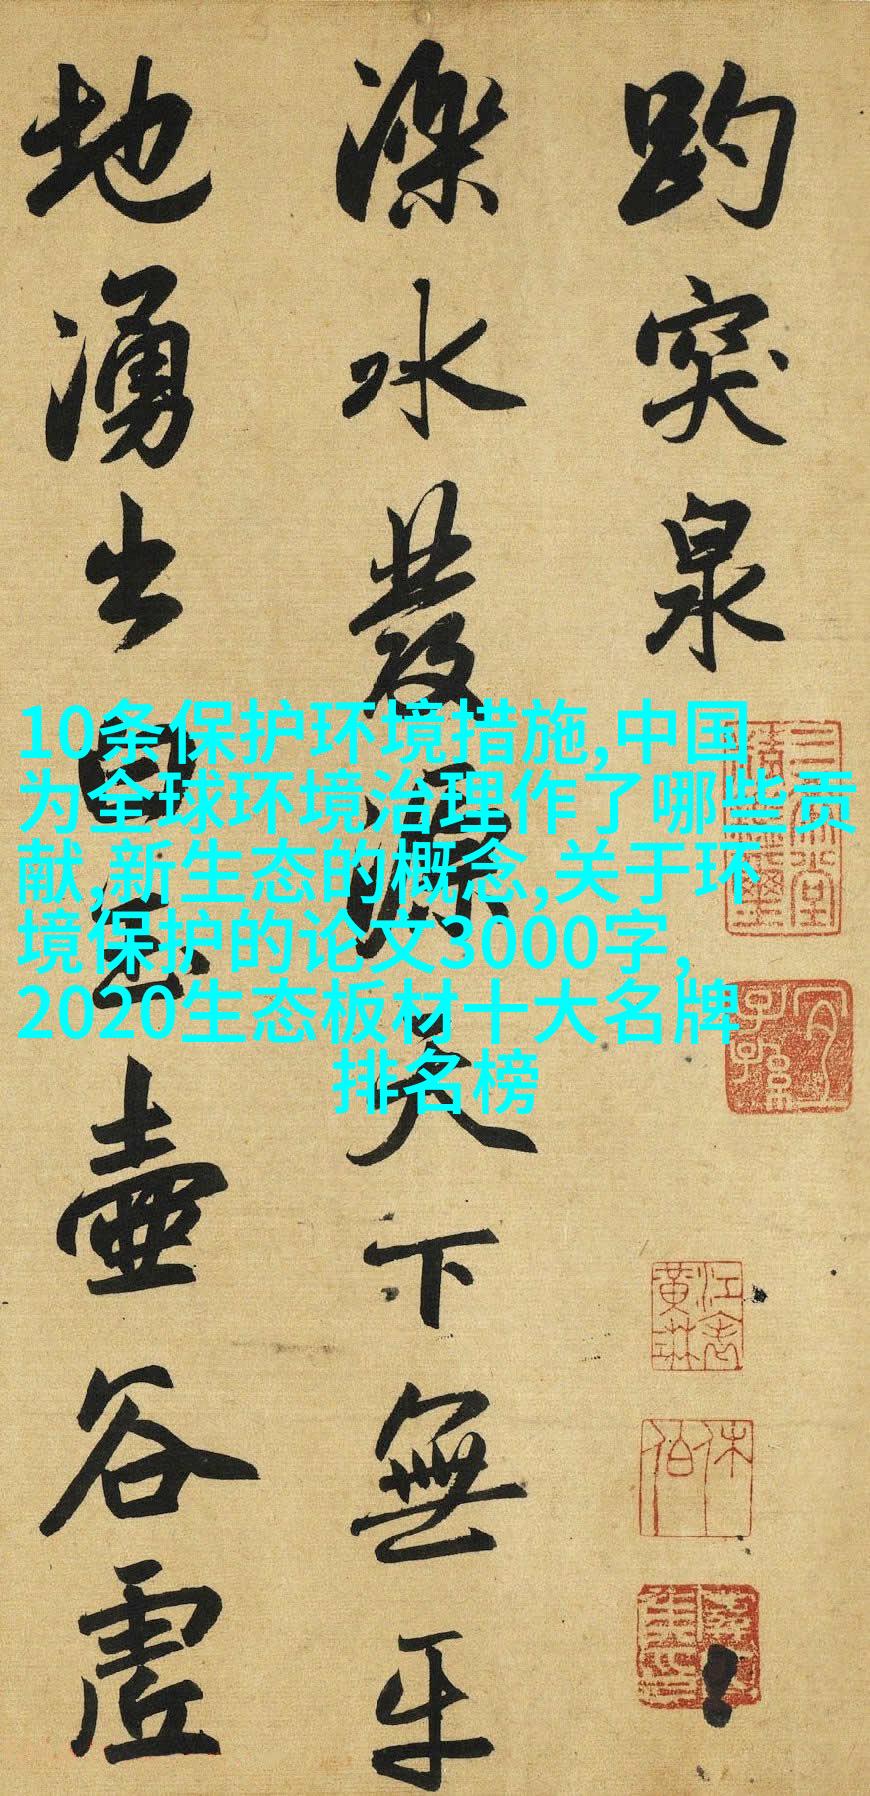 趵突泉
濼水發源天下無平
地湧出白玉壺谷虛
10条保护环境措施,中国
为全球环境治理作了哪些贡
献,新生态的概念,关于环
境保护的论文3000字,
2020生态板材十大名牌
排名榜